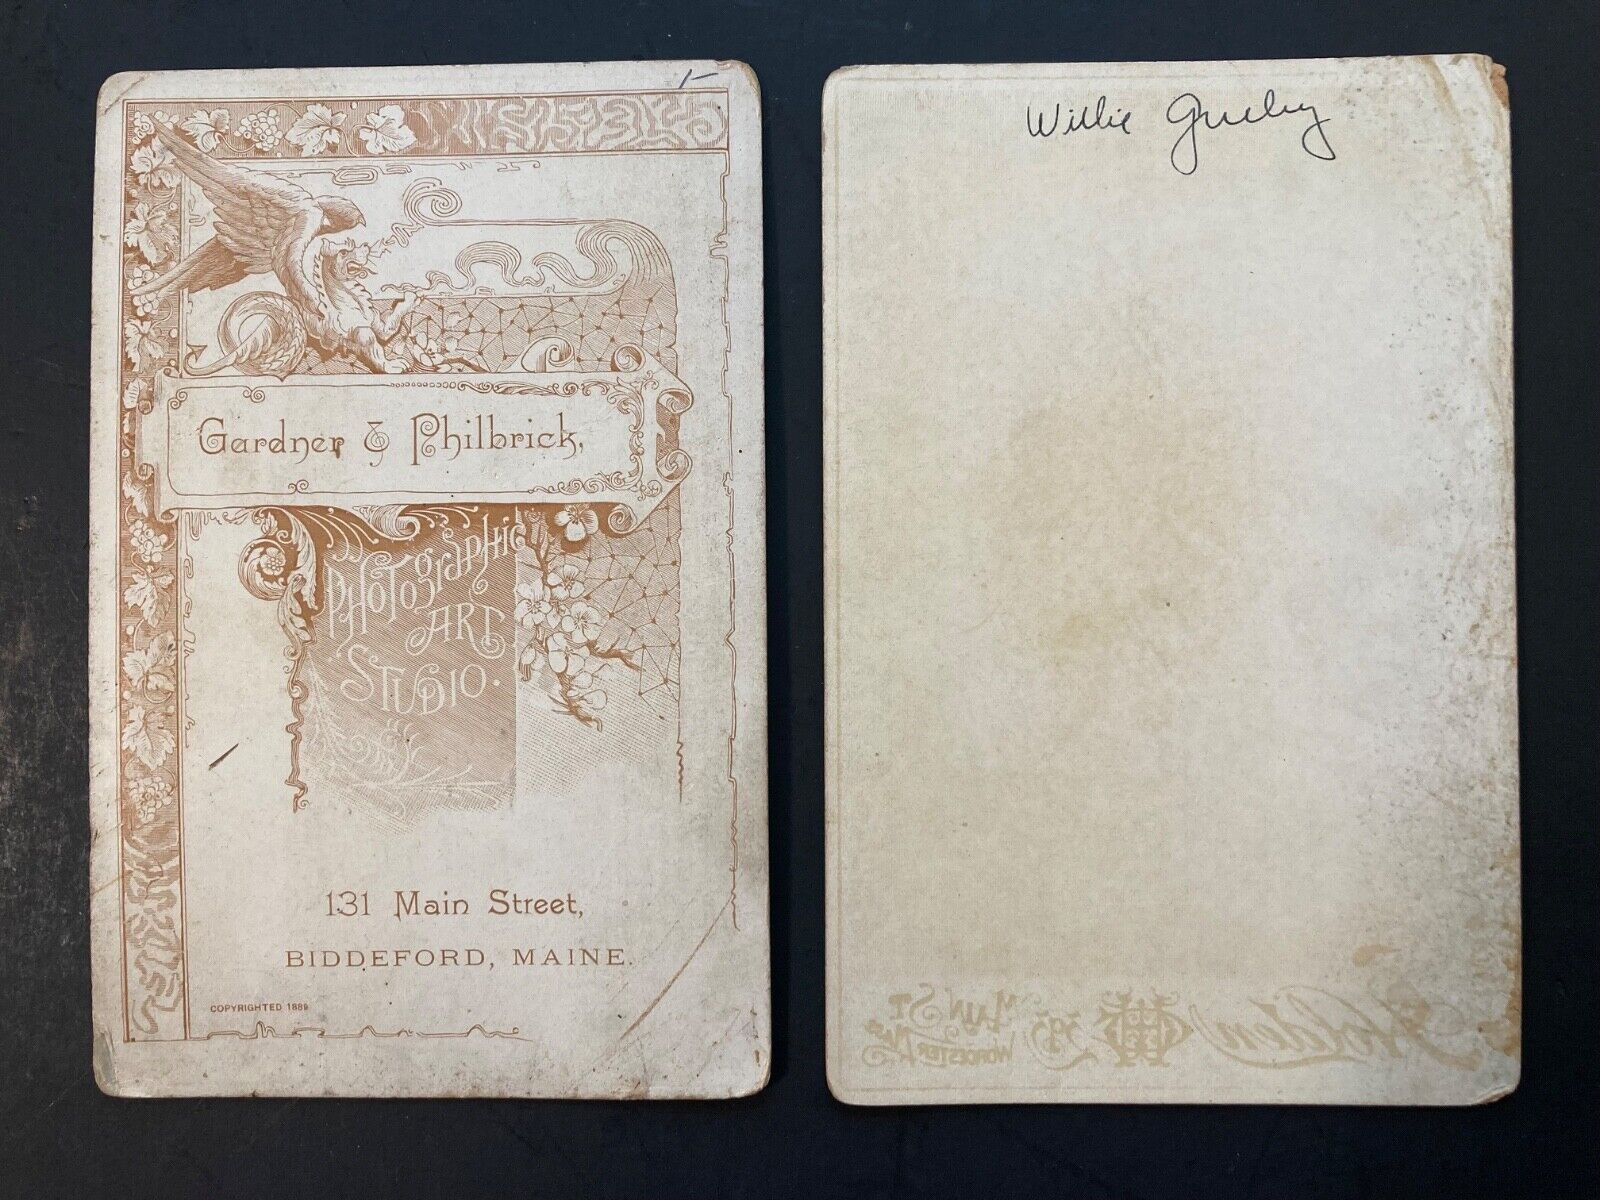 Gardner & Philbrick,
PHOTOGRAPHIC
ART
STUDIO.
131 Main Street,
BIDDEFORD, MAINE.
COPYRIGHTED 1889
Willie
Holden
MAIN ST
WORCESTER